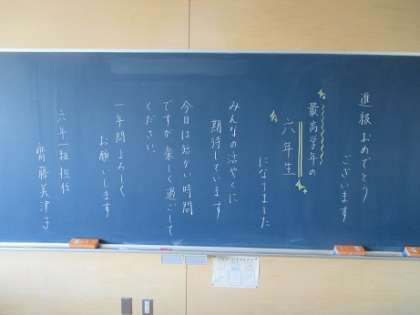 進級おめでとう
ございます
最高学年の
六年生
になりました
みんなの活やくに
期待しています
今日は短かい時間
ですが楽しく過ごして
ください。
一年間よろしく
お願いします
六年一組担任
齊藤美津子